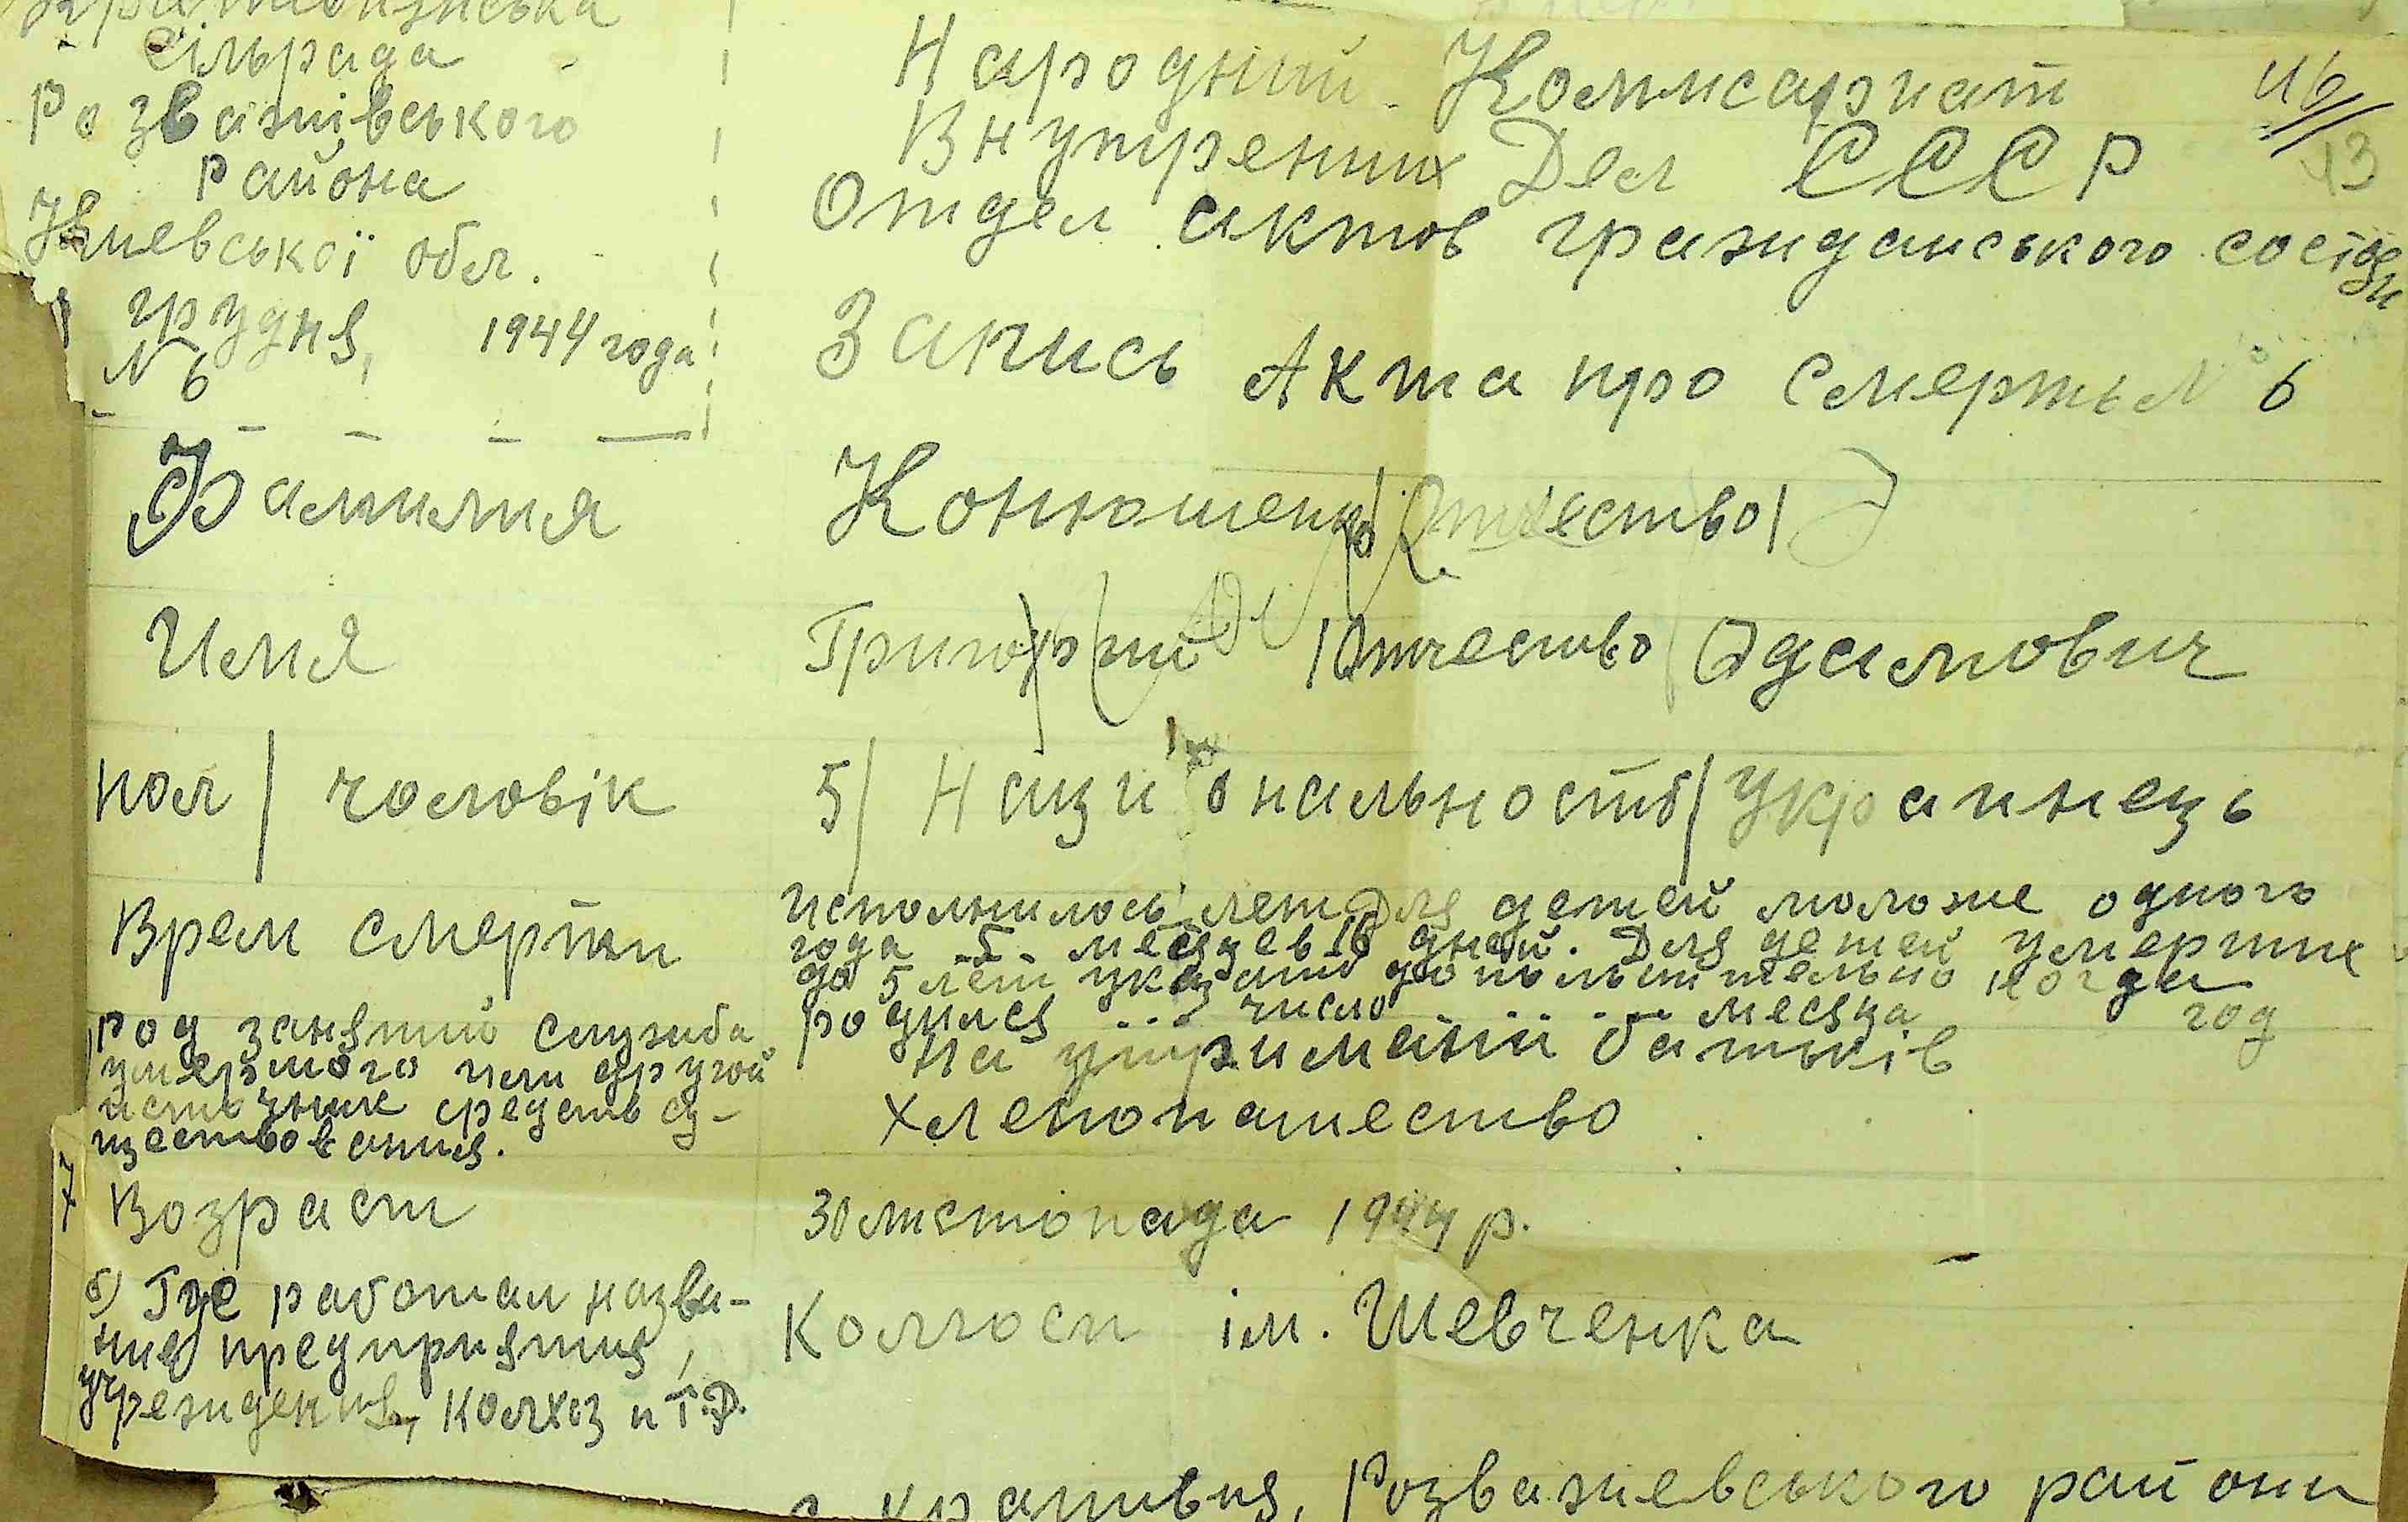 сільрада
Розважівського
района
Киевської обл.
грудня, 1944 года
N 6
Народний Коммисариат
Внутрених Дел СССР
Отдел актов гражданського
Запись Акта про смерть № 6
46
43
Фамилия Конюшенко /Отчество/
Имя Григорий /Отчество/ Одамович
пол / чоловік 5/ Націиональность/ Украинець
Врем смерти
Исполнилось лет Для детей моложе одного
года 5 месяцев 16 дней. Для детей умерших
до 5 лет указать дополнительно когда
родился ... число ... месяца год
род занятий служба
умершого или другой
источник средств су-
ществования.
на утриманії батьків
хлепопашество
7 Возраст 30 листопада 1944 р.
б) Где работал назва-
ние предприятия,
учреждения, колхоз и т.д.
Колгосп ім. Шевченка
Розважевського района